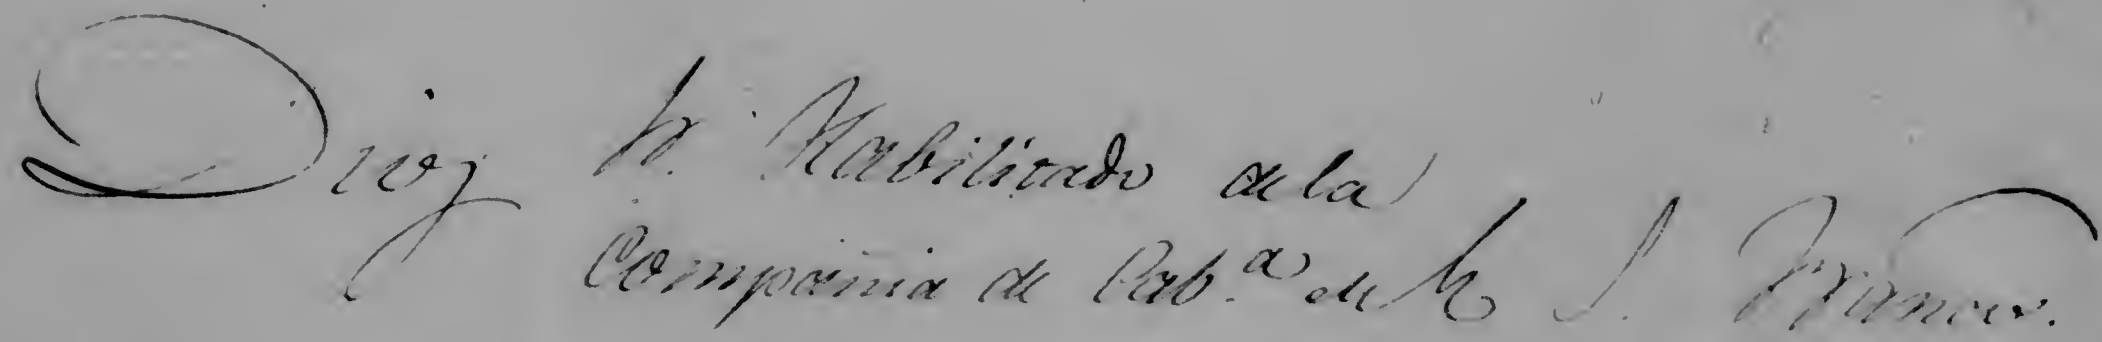 Diez Sr. Habilitado de la
Compañia de Cab.ª de S. Franco.